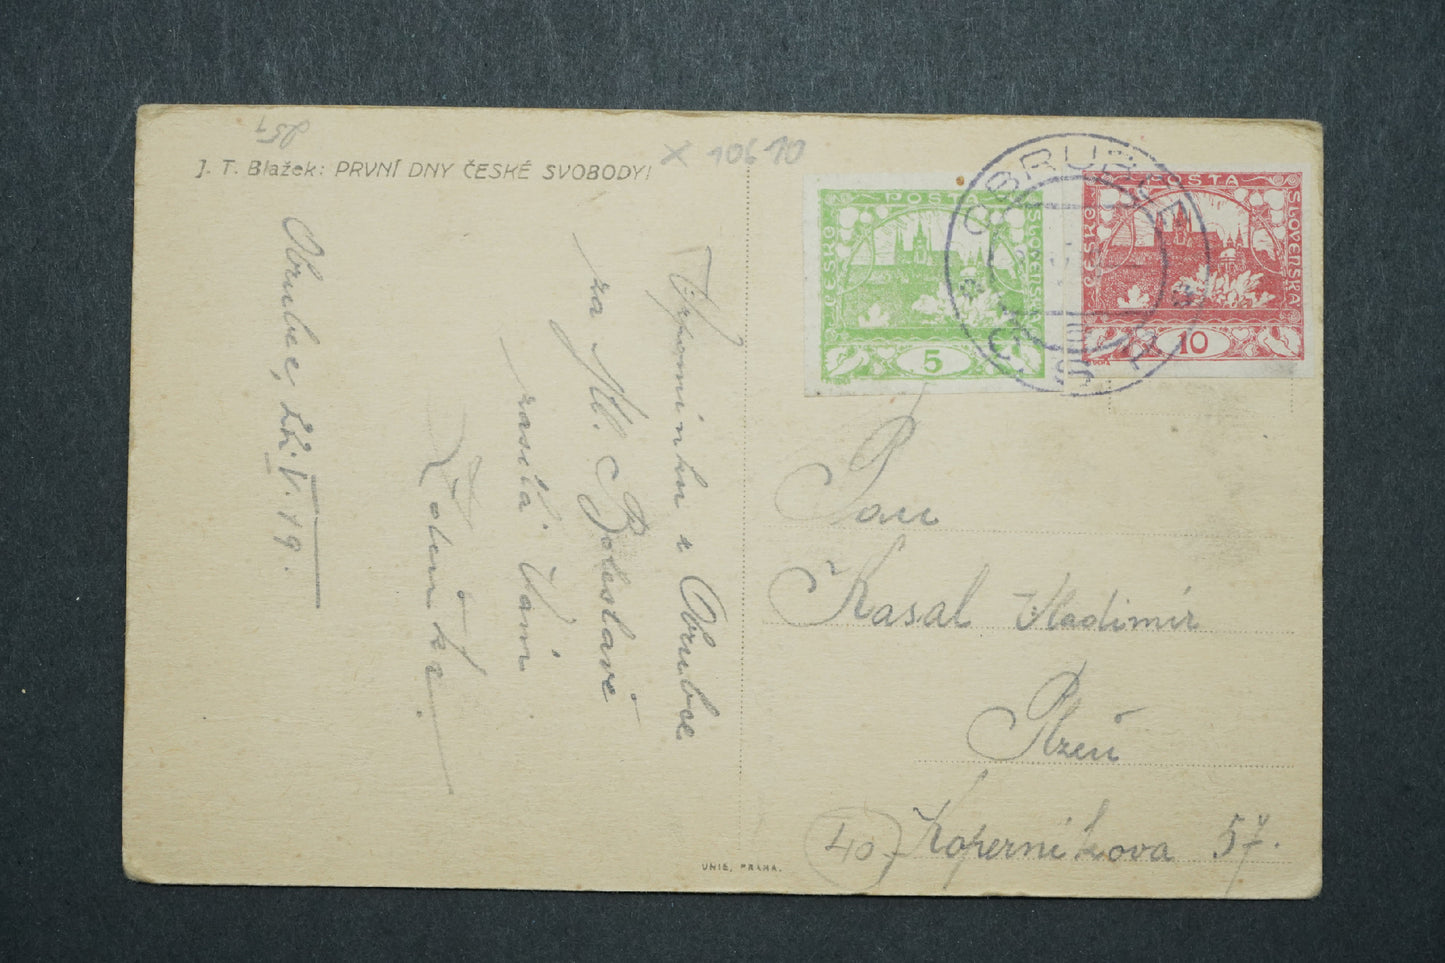 J. T. Blažek: PRVNÍ DNY ČESKÉ SVOBODY!
X 10610
Obrubce, 22.V.19.
Vzpomínku z Obrubce
za Ml. Boleslavě
zasílá Vám
POSTA
ČESKO
SLOVENSKÁ
5
POSTA
ČESKO
SLOVENSKÁ
10
OBRUBCE
Pan
Kasal Vladimír
Plzeň
Koperníkova 57.
40
UNIE, PRAHA.